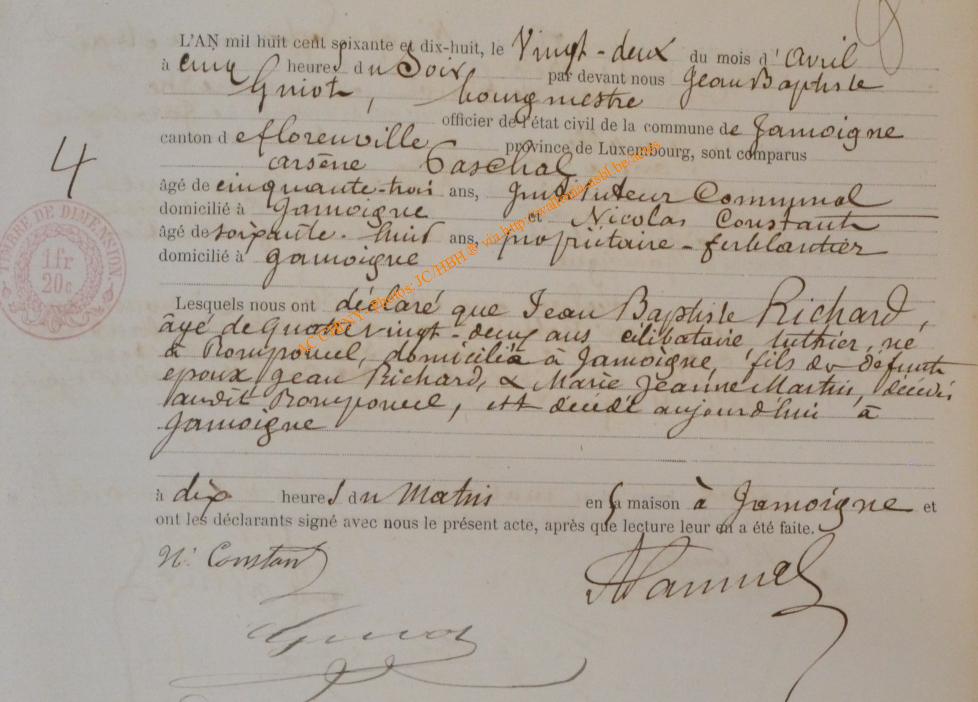 L'AN mil huit cent soixante et dix-huit, le Vingt-deux du mois d'avril
à cinq heures du Soir par devant nous Jean Baptiste
Guiot, bourgmestre
officier de l'état civil de la commune de Jamoigne
canton de florenville province de Luxembourg, sont comparus
arsène Paschal
âgé de cinquante-trois ans, Instituteur Communal
domicilié à Jamoigne et Nicolas Constant
âgé de soixante-huit ans, propriétaire-ferblantier
domicilié à Jamoigne
4
TIMBRE DE DIMENSION
1 fr
20 c
Lesquels nous ont déclaré que Jean Baptiste Richard,
âgé de Quatre vingt-deux ans célibataire luthier, né
à Romponcel, domicilié à Jamoigne, fils de défunts
époux Jean Richard, & Marie Jeanne Martin, décédés
audit Romponcel, est décédé aujourd'hui à
Jamoigne
à dix heures du Matin en sa maison à Jamoigne et
ont les déclarants signé avec nous le présent acte, après que lecture leur en a été faite.
N. Constant
Guiot